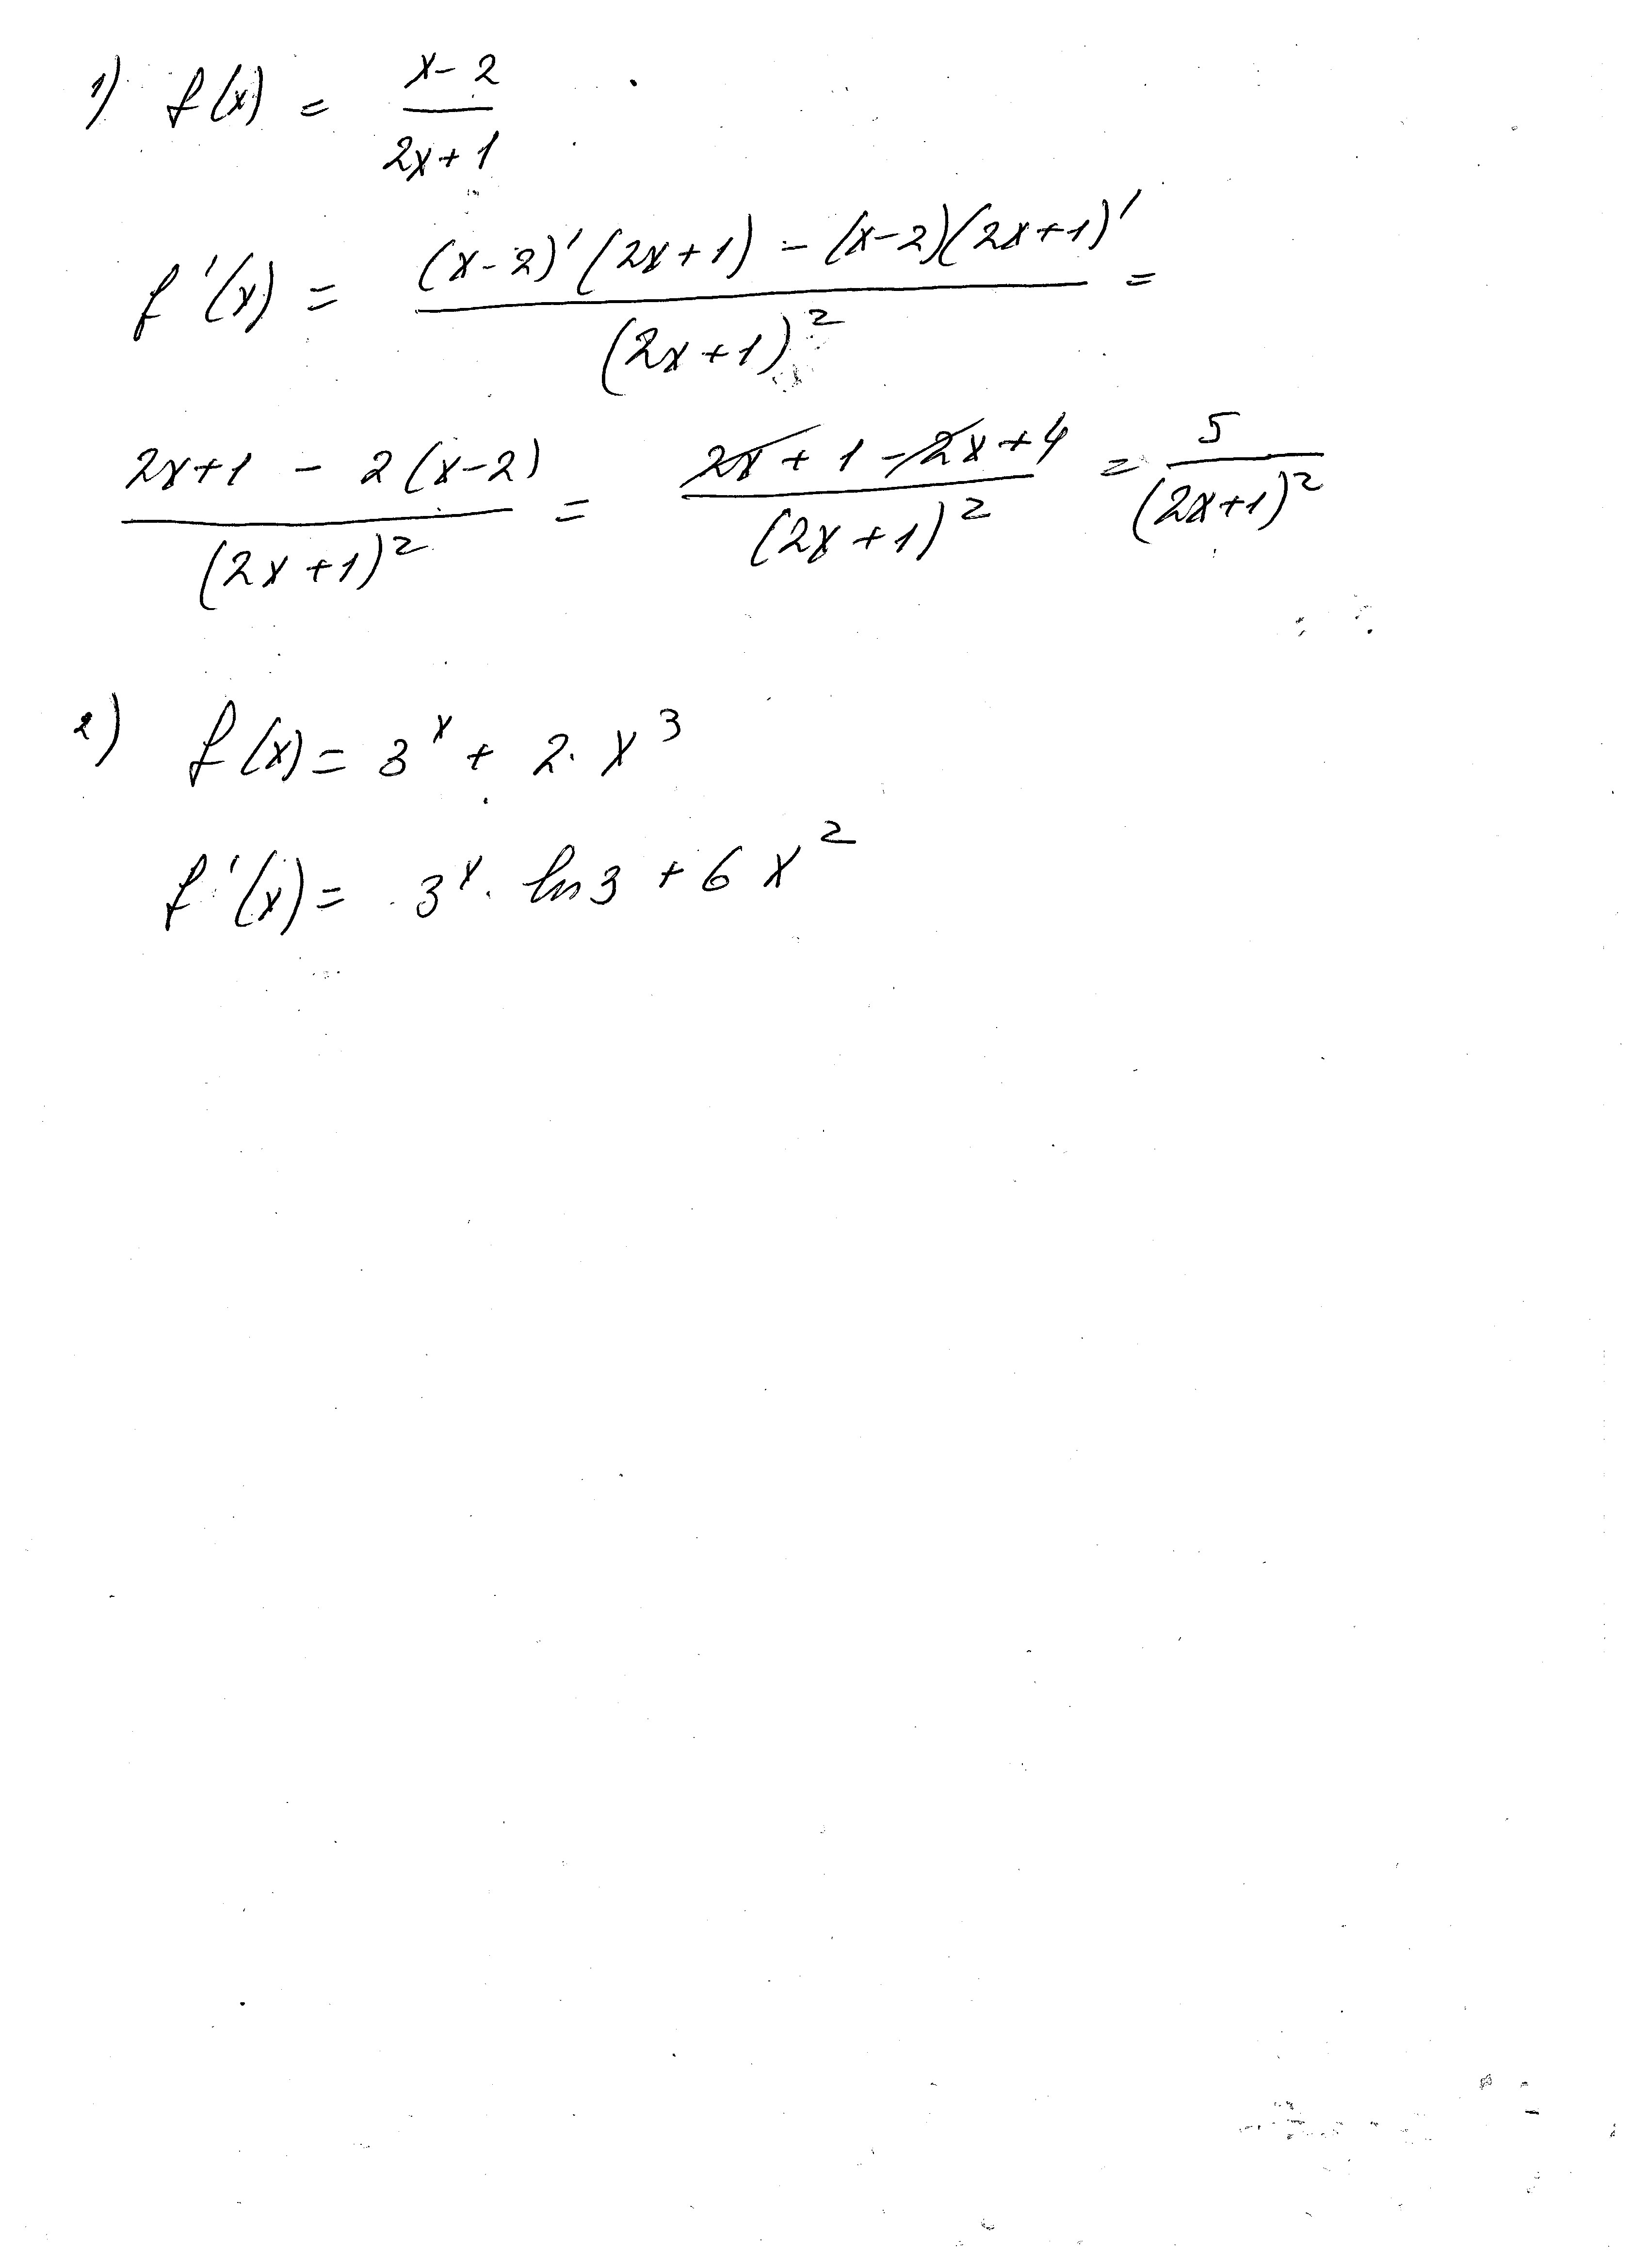 1) f(x) = (x-2)/(2x+1)
f'(x) = ((x-2)'(2x+1) - (x-2)(2x+1)')/(2x+1)² =
(2x+1 - 2(x-2))/(2x+1)² = (2x+1-2x+4)/(2x+1)² = 5/(2x+1)²
2) f(x) = 3ˣ + 2·x³
f'(x) = 3ˣ·ln3 + 6x²